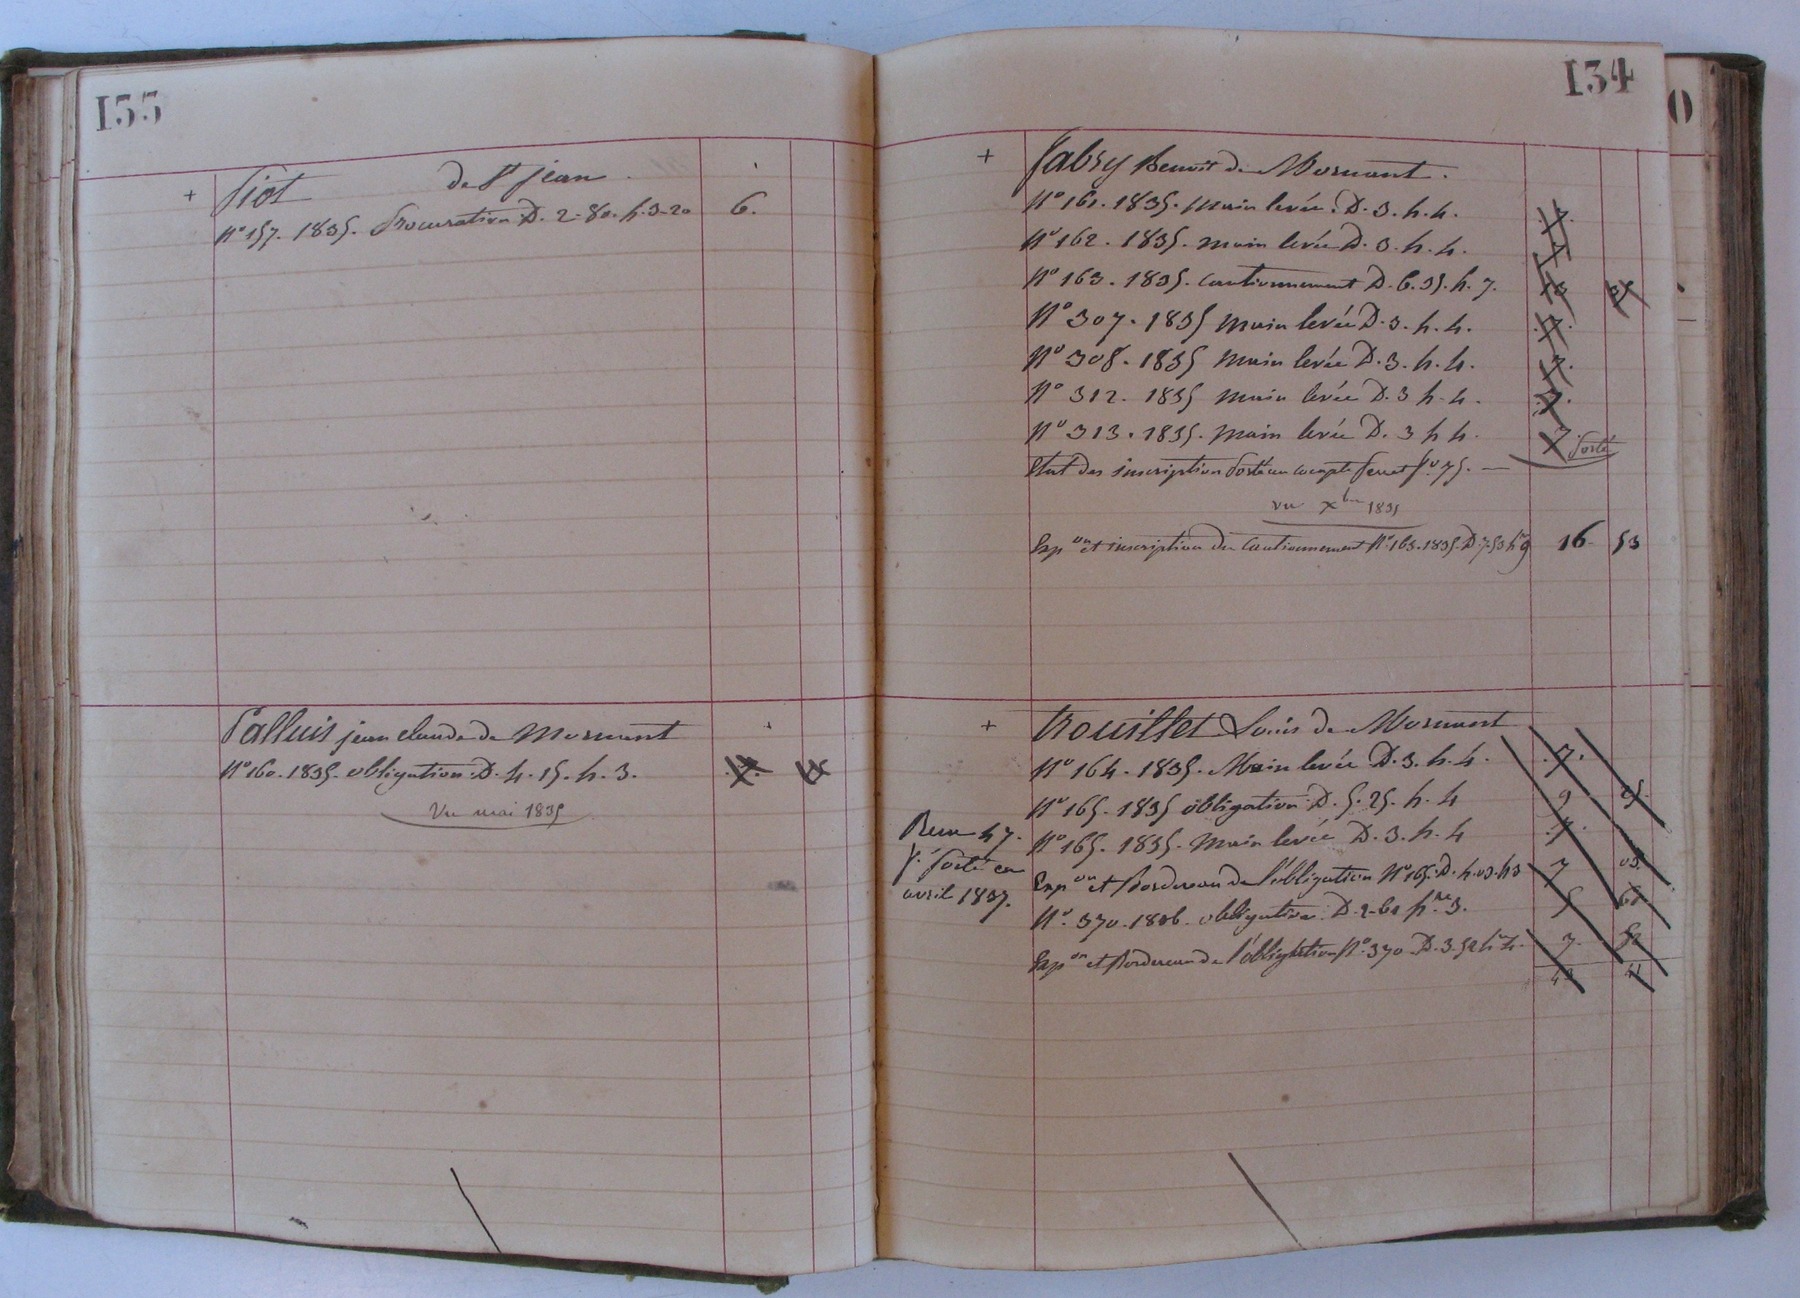 133
Piot de St jean.
No 157. 1835. Procuration D. 2-80. h. 3-20 6.
Palluis jean claude de Mornant
No 160. 1835. obligation D. 4. 15. h. 3.
Vu mai 1835
134
0
fabry Benoit de Mornant.
No 161. 1835. main levée. D. 3. h. 4. 7.
No 162. 1835. main levée D. 3. h. 4. 7
No 163. 1835. cautionnement D. 6. 35. h. 7. 13 35
No 307. 1835 main levée D. 3. h. 4. 7.
No 308. 1835 main levée D. 3. h. 4. 7.
No 312. 1835 main levée D. 3 h. 4. 7.
No 313. 1835. main levée D. 3 h 4. 7. Porté
Etat des inscription Porté au compte ferret fo 75.
vu xbre 1835
Expon et inscription du Cautionnement No 163. 1835. D. 7-53 hre 9 16 53
trouillet Louis de Mornant
No 164. 1835. Main levée D. 3. h. 4. 7.
No 165. 1835 obligation D. 5. 25. h. 4 9 25.
No 165. 1835. Main levée D. 3. h. 4 7.
Expon et Bordereau de l'obligation No 165. D. 4. 03. h 3 7 03
No. 370. 1836. obligation D. 2-60 hre 3. 5 60
Expon et Bordereau de l'obligation No. 370. D. 3. 52 hre 4. 7. 52
Porté en
avril 1837.